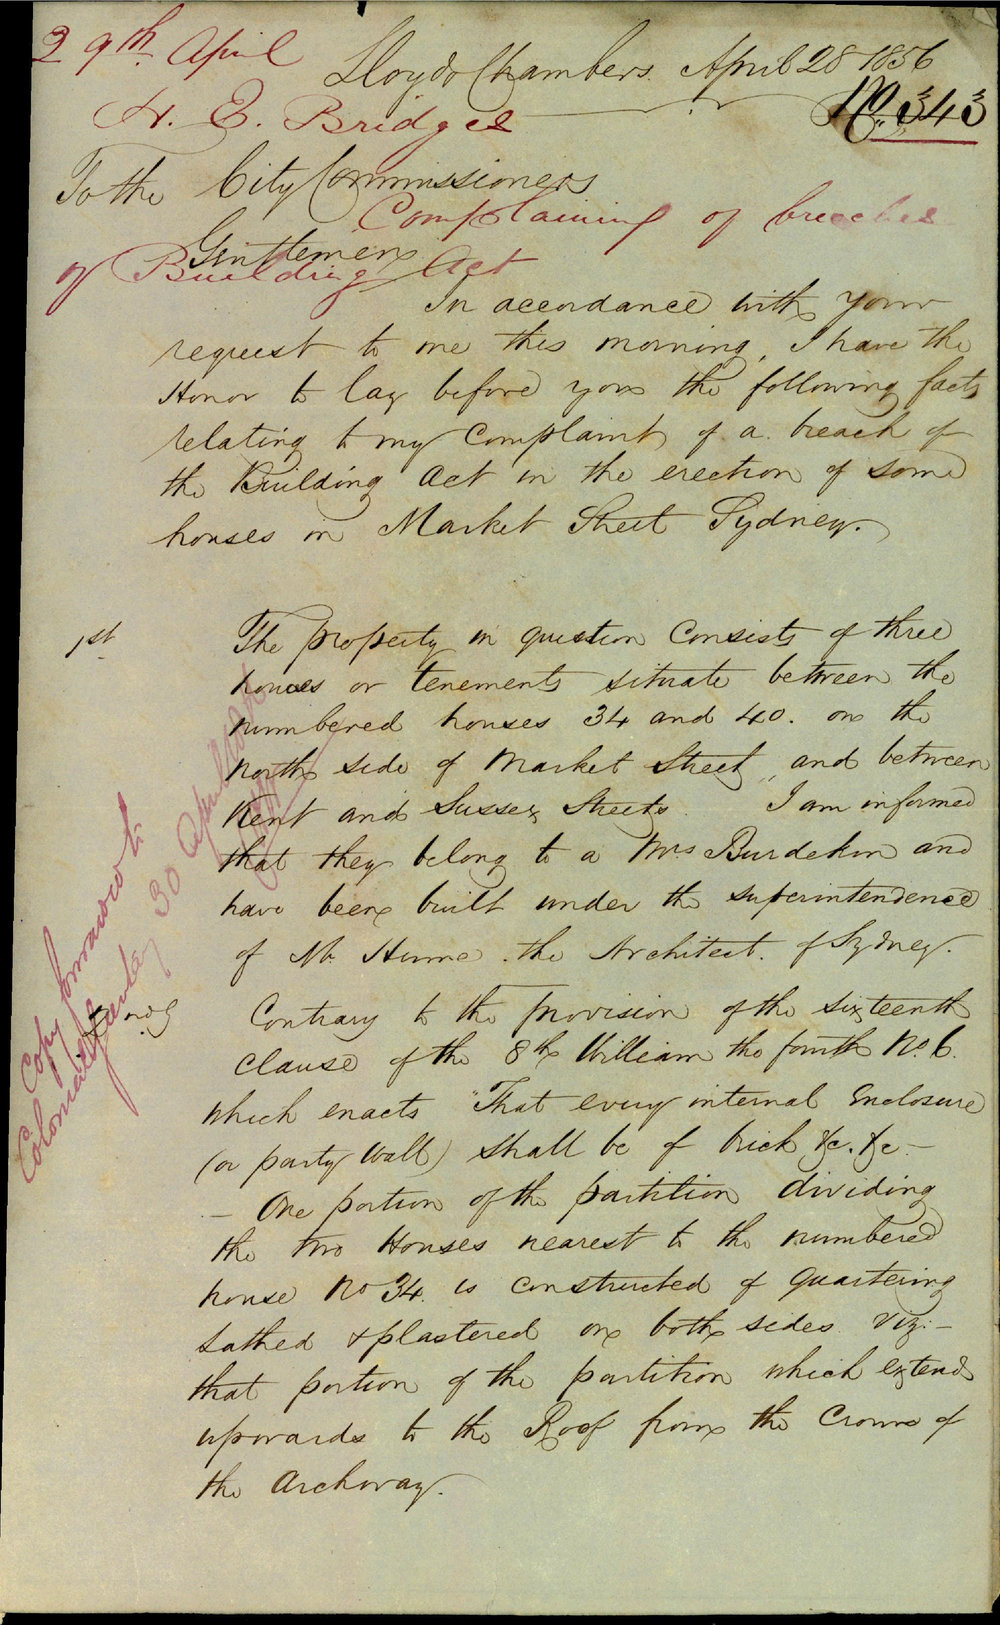 29th April
Lloyds Chambers. April 28 1856
H. E. Bridges
No. 343
To the City Commissioners
Complaining of breeches
Gentlemen
of Building Act
In accordance with your
request to me this morning, I have the
Honor to lay before you the following facts
relating to my Complaint of a breach of
the Building Act in the erection of some
houses in Market Street Sydney.
1st
The property in question Consists of three
houses or tenements situate between the
numbered houses 34 and 40. on the
North side of Market Street, and between
Kent and Sussex Streets I am informed
that they belong to a Mrs Burdekin and
have been built under the superintendence
of Mr Hume. the Architect. of Sydney.
Copy forwarded to
Colonial
30 April
Contrary to the provision of the sixteenth
clause of the 8th William the fourth No. 6.
which enacts "That every internal Enclosure
(or party Wall) shall be of brick &c. &c -
- One portion of the partition dividing
the two Houses nearest to the numbered
house No 34. is constructed of Quartering
Lathed & plastered on both sides Viz: -
that portion of the partition which extends
upwards to the Roof from the Crown of
the Archway.